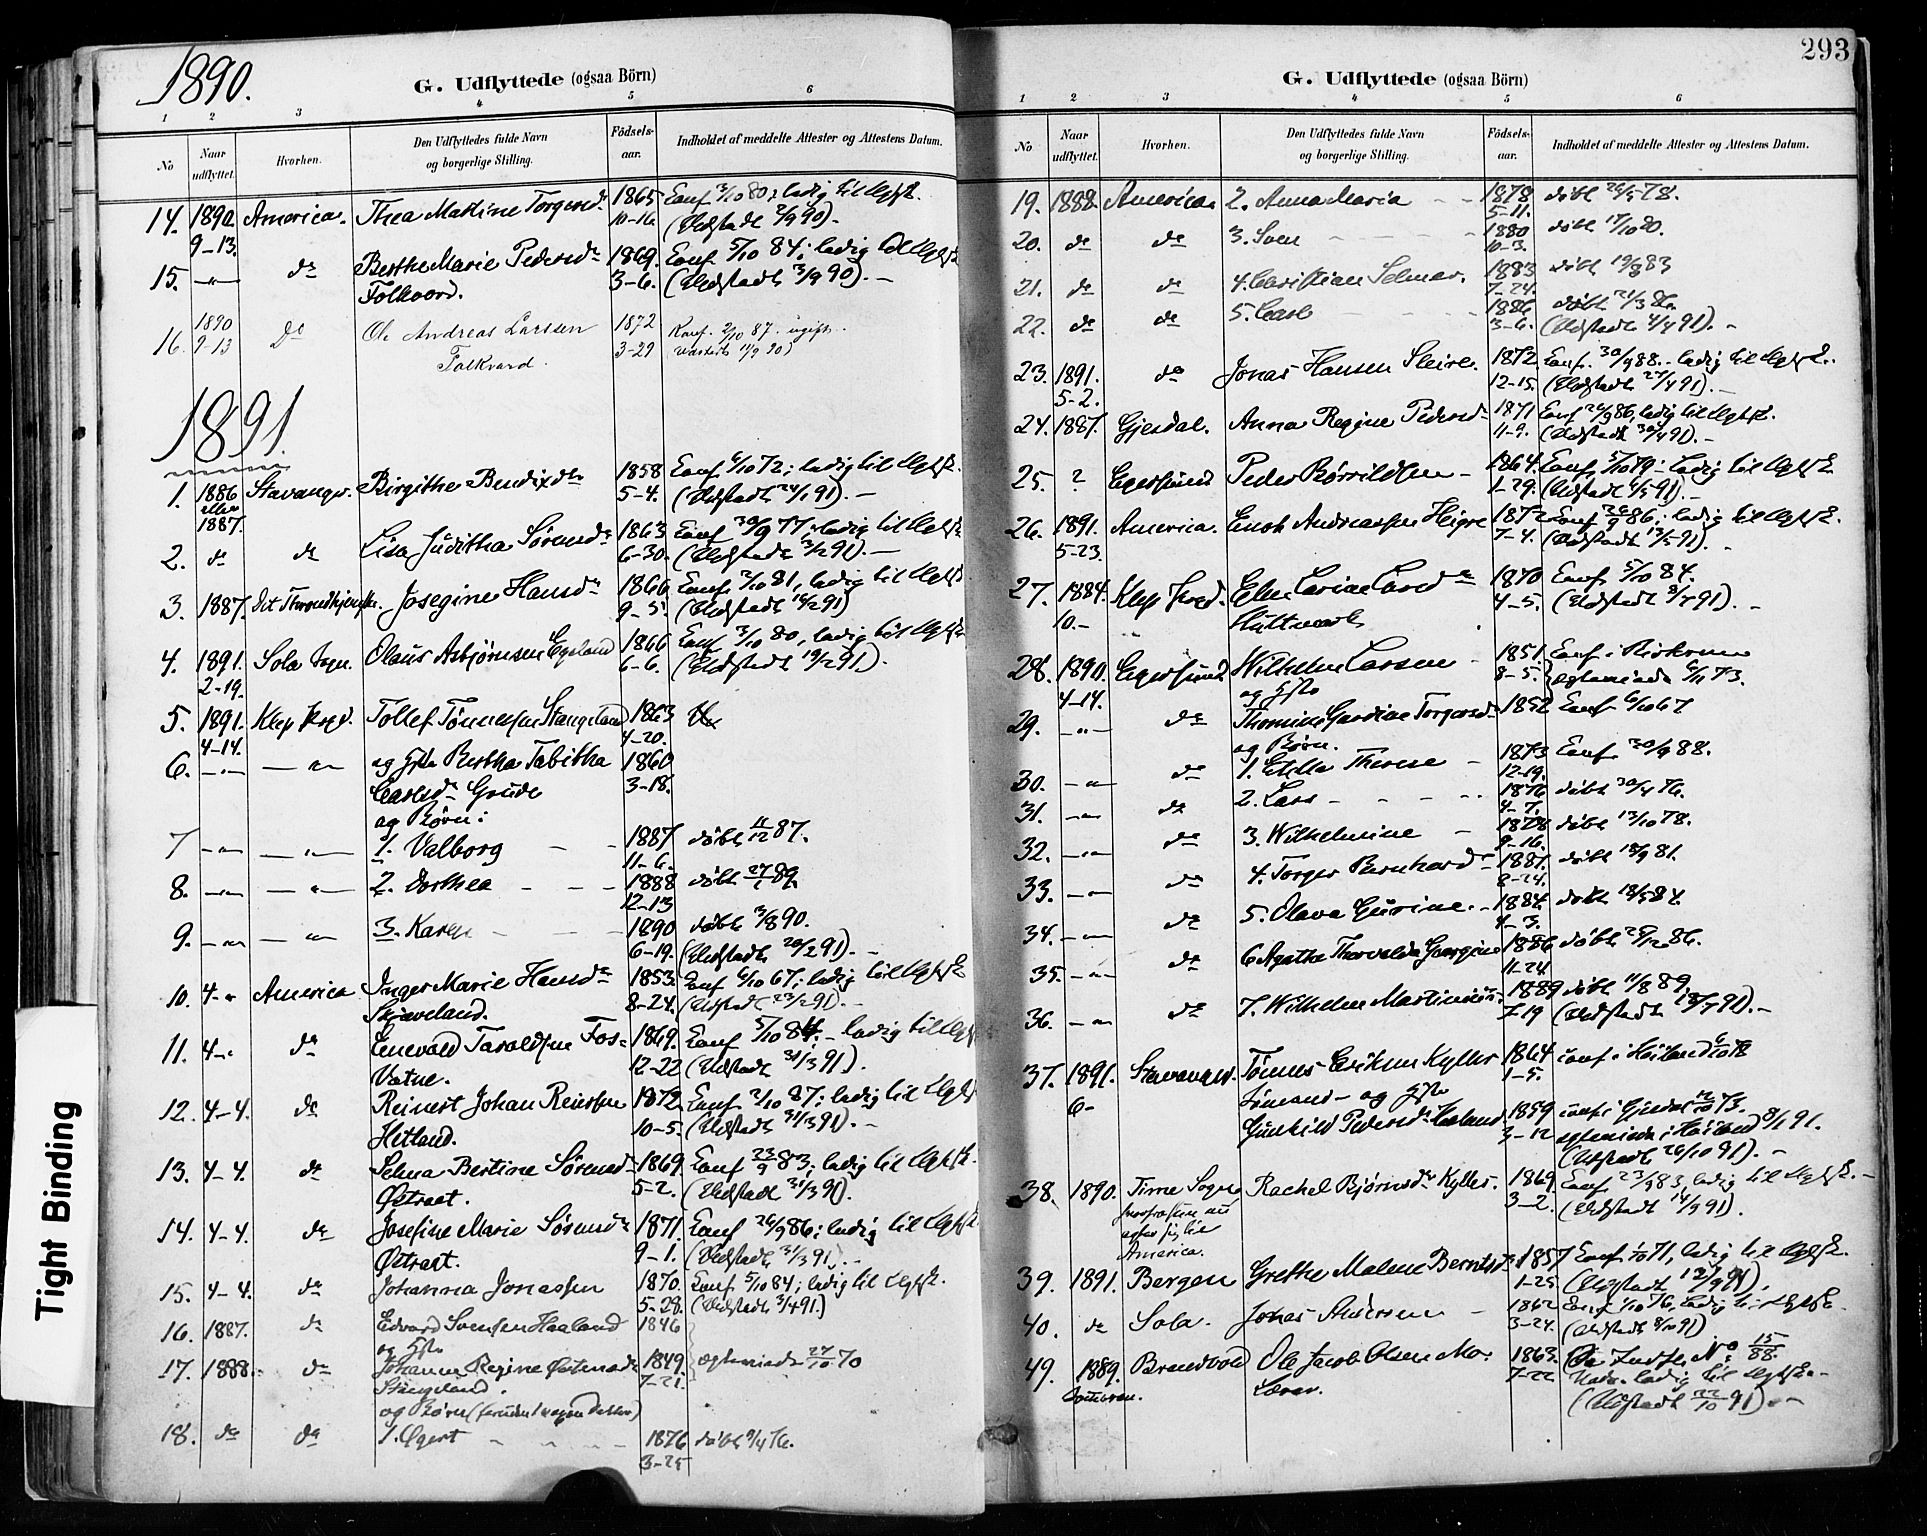 1890.
G. Udflyttede (ogsaa Börn)
1 2 3 4 5 6
No
Naar udflyttet.
Hvorhen.
Den Udflyttedes fulde Navn og borgerlige Stilling.
Födsels-aar.
Indholdet af meddelte Attester og Attestens Datum.
14. 1890. America. Thea Martine Torgersd. 1865 Conf 3/10 80; ladig til
9-13. 10-16. (Udstedt 9/9 90).
15. -"- do Berthe Marie Pedersd. 1869. Conf 5/10 84; ladig til
Folkvord. 3-6. (Udstedt 3/9 90). -
16. 1890 Do Ole Andreas Larssen 1872 Konf. 2/10 87. ugift.
9-13 Folkvord. 3-29 11/9 90)
1891.
1. 1886 Stavanger. Birgithe Bendixdr 1858 Conf 6/10 72; ladig til
eller 5-4. (Udstedt 24/1 91). -
1887.
2. do do Lisa Juditha Sørensdr 1863 Conf 30/9 77; ladig til
6-30. (Udstedt 3/2 91). -
3. 1887. Det Throndhjemske. Josegine Hansdr 1866 Conf 2/10 81, ladig til
9-5. (Udstedt 16/2 91)
4. 1891. Sola Sogn. Olaus Asbjørnsen Egeland 1866 Conf 3/10 80, ladig til
2-19. 6-6. (Udstedt 19/2 91).
5. 1891. Klep Tollef Tønnesen Stangeland 1863
4-14. 4-20.
6. -"- -"- og Hstr Bertha Tabitha 1860
Carlsdr Grude 3-18.
og Børn:
7 -"- -"- 1. Valborg - - 1887 døbt 11/12 87.
11-6.
8. -"- -"- 2. Dorthea - - - 1888 døbt 27/1 89.
12-13
9. -"- -"- 3. Karen - - - 1890 døbt 3/8 90.
6-19. (Udstedt 20/2 91). -
10. 4-" America Inger Marie Hansdr 1853. Conf 6/10 67; ladig til
Skjæveland. 8-24. (Udstedt 23/2 91). -
11. 4-" do Enevald Taraldsen Fos= 1869. Conf 5/10 84. - ladig til
Vatne. 12-22 (Udstedt 31/3 91).
12. 4-4. do Reinert Johan Reinertsen 1872. Conf 2/10 87; ladig til
Hetland. 10-5. (Udstedt 31/3 91). -
13. 4-4. do Selma Bertine Sørensdr 1869. Conf 23/9 83; ladig til
Østraet. 5-2. (Udstedt 31/3 91).
14. 4-4. do Josefine Marie Sørensdr 1871. Conf 26/9 86; ladig til
Østraet. 9-1. (Udstedt 31/3 91). -
15. 4-4. do Johanna Jonassen 1870. Conf 5/10 84; ladig til
5-28. (Udstedt 3/4 91.)
16. 1887. do Edvard Svensen Haaland 1846
og Hstr
17. 1888. do Johanne Regine 1849 ægteviede 27/10 70
Stangeland. 7-21.
og Børn
18. do do 1. Øgert - - - 1876 døbt 9/4 76.
3-25
293
G. Udflyttede (ogsaa Börn)
1 2 3 4 5 6
No
Naar udflyttet.
Hvorhen.
Den Udflyttedes fulde Navn og borgerlige Stilling.
Födsels-aar.
Indholdet af meddelte Attester og Attestens Datum.
19. 1888. America. 2. Anna Maria - - 1878 døbt 26/5 78.
5-11.
20. do do 3. Sven - - - 1880 døbt 17/10 80.
10-3.
21. do do 4. Christian Selmer. 1883 døbt 19/8 83
7-24.
22. do do 5. Carl - - - 1886 døbt 21/3 86.
3-6. (Udstedt 4/4 91). -
23. 1891. do Jonas Hansen Sleire. 1872. Conf. 30/9 88. - ladig til
5-2. 12-15. (Udstedt 27/4 91). -
24. 1887. Gjesdal. Anna Regine Pedersdr 1871 Conf 26/9 86, ladig til
11-9. (Udstedt 30/4 91). -
25. ? Egersund Peder Børrildsen - 1864. Conf 5/10 79 - ladig til
1-29. (Udstedt 6/5 91). -
26. 1891. America. Enok Andreassen Heigre 1872 Conf 26/9 86; ladig til
5-23. 7-4. (Udstedt 13/5 91). -
27. 1884. Klep Else Larine Larsdr 1870 Conf 5/10 84.
10.- 4-5. (Udstedt 91). -
28. 1890. Egersund Wilhelm Larsen - 1851. Conf i
4-14. og Hstr 8-5. ægteviede 73.
29. -"- do Thomine Gurdine Torgersdr 1852 Conf 6/10 67
og Børn.
30. -"- do 1. Therese - 1873 Conf 30/9 88.
12-19.
31. -"- do 2. Lars - - - 1876 døbt 30/4 76.
4-7.
32. -"- do 3. Wilhelmine - 1878 døbt 13/10 78.
9-16.
33. -"- do 4. Torger Bernhard - 1881. døbt 18/9 81.
8-24.
34. -"- do 5. Olava Gurine. - 1884. døbt 18/5 84.
4-3.
35. -"- do 6 Agathe Thorvalda Georgine 1886 døbt 26/12 86.
11-24
36. -"- do 7. Wilhelm Martinius. 1889 døbt 11/8 89.
7-19 (Udstedt 91). -
37. 1891. Stavanger. Tønnes Eriksen Kylles 1864 conf i Høiland 6/10 78
6- Sømand - og Hstr 1-5.
Gunhild Pedersdr 1859 conf i Gjesdal 12/10 73.
3-12 ægteviede i Høiland 8/1 91.
(Udstedt 26/10 91). -
38. 1890. Time Sogn Rachel Bjørnsdr Kylles. 1869 Conf 23/9 83, ladig til -
3-2. (Udstedt 14/9 91).
America.
39. 1891. Bergen Grethe Malene Berntsdr 1857 Conf 1/10 71, ladig til
1-25 (Udstedt 12/9 91).
40. do Sola. Jonas Andersen - 1862 Conf 1/10 76, ladig til
3-24. (Udstedt 8/10 91)
49. 1889. Ole Jacob Olsen Mo. 1863. No 15/88.
Lærer. 7-22 ladig til
(Udstedt 22/10 91). -
Tight Binding